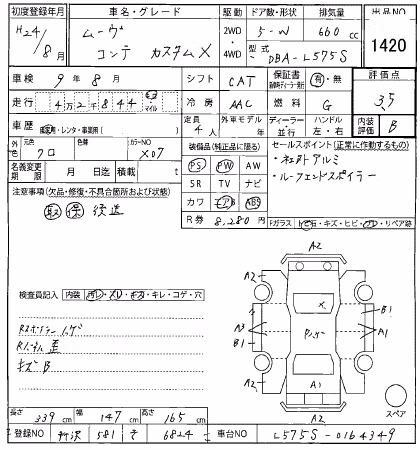 初度登録年月 車名・グレード 駆動 ドア数・形状 排気量 出品NO
H24/8月 ムーヴ コンテ カスタムX 2WD・4WD 5-W 660cc 1420
型式 DBA-L575S
車検 9年8月 シフト CAT 保証書 有・無 評価点
走行 4万2千844 キロ マイル 冷房 AAC 燃料 G 3.5
車歴 自家用・レンタ・事業用( ) 定員 4人 外車モデル 年 ディーラー 並行 ハンドル 左・右 内装評価 B
外色 元色 クロ 色替 カラーNO X07
装備品(純正品に限る) セールスポイント(正常に作動するもの)
名義変更期限 月 日迄 積載 t PS PW AW ・純正アルミ
SR TV ナビ ・ルーフエンドスポイラー
注意事項(欠品・修復・不具合箇所および状態) カワ エアB ABS
取 保 後送 R券 8,280円
Fガラス トビ石・キズ・ヒビ・ワレ・リペア跡
検査員記入 内装 ヨゴレ・スレ・キズ・キレ・コゲ・穴
キズB
A2
A2 A2
B1
A3 A1
B1
A2 A2
A1
A2
スペア
長さ 339cm 幅 147cm 高さ 165cm
登録NO 所沢 581 き 6824 車台NO L575S-0164349